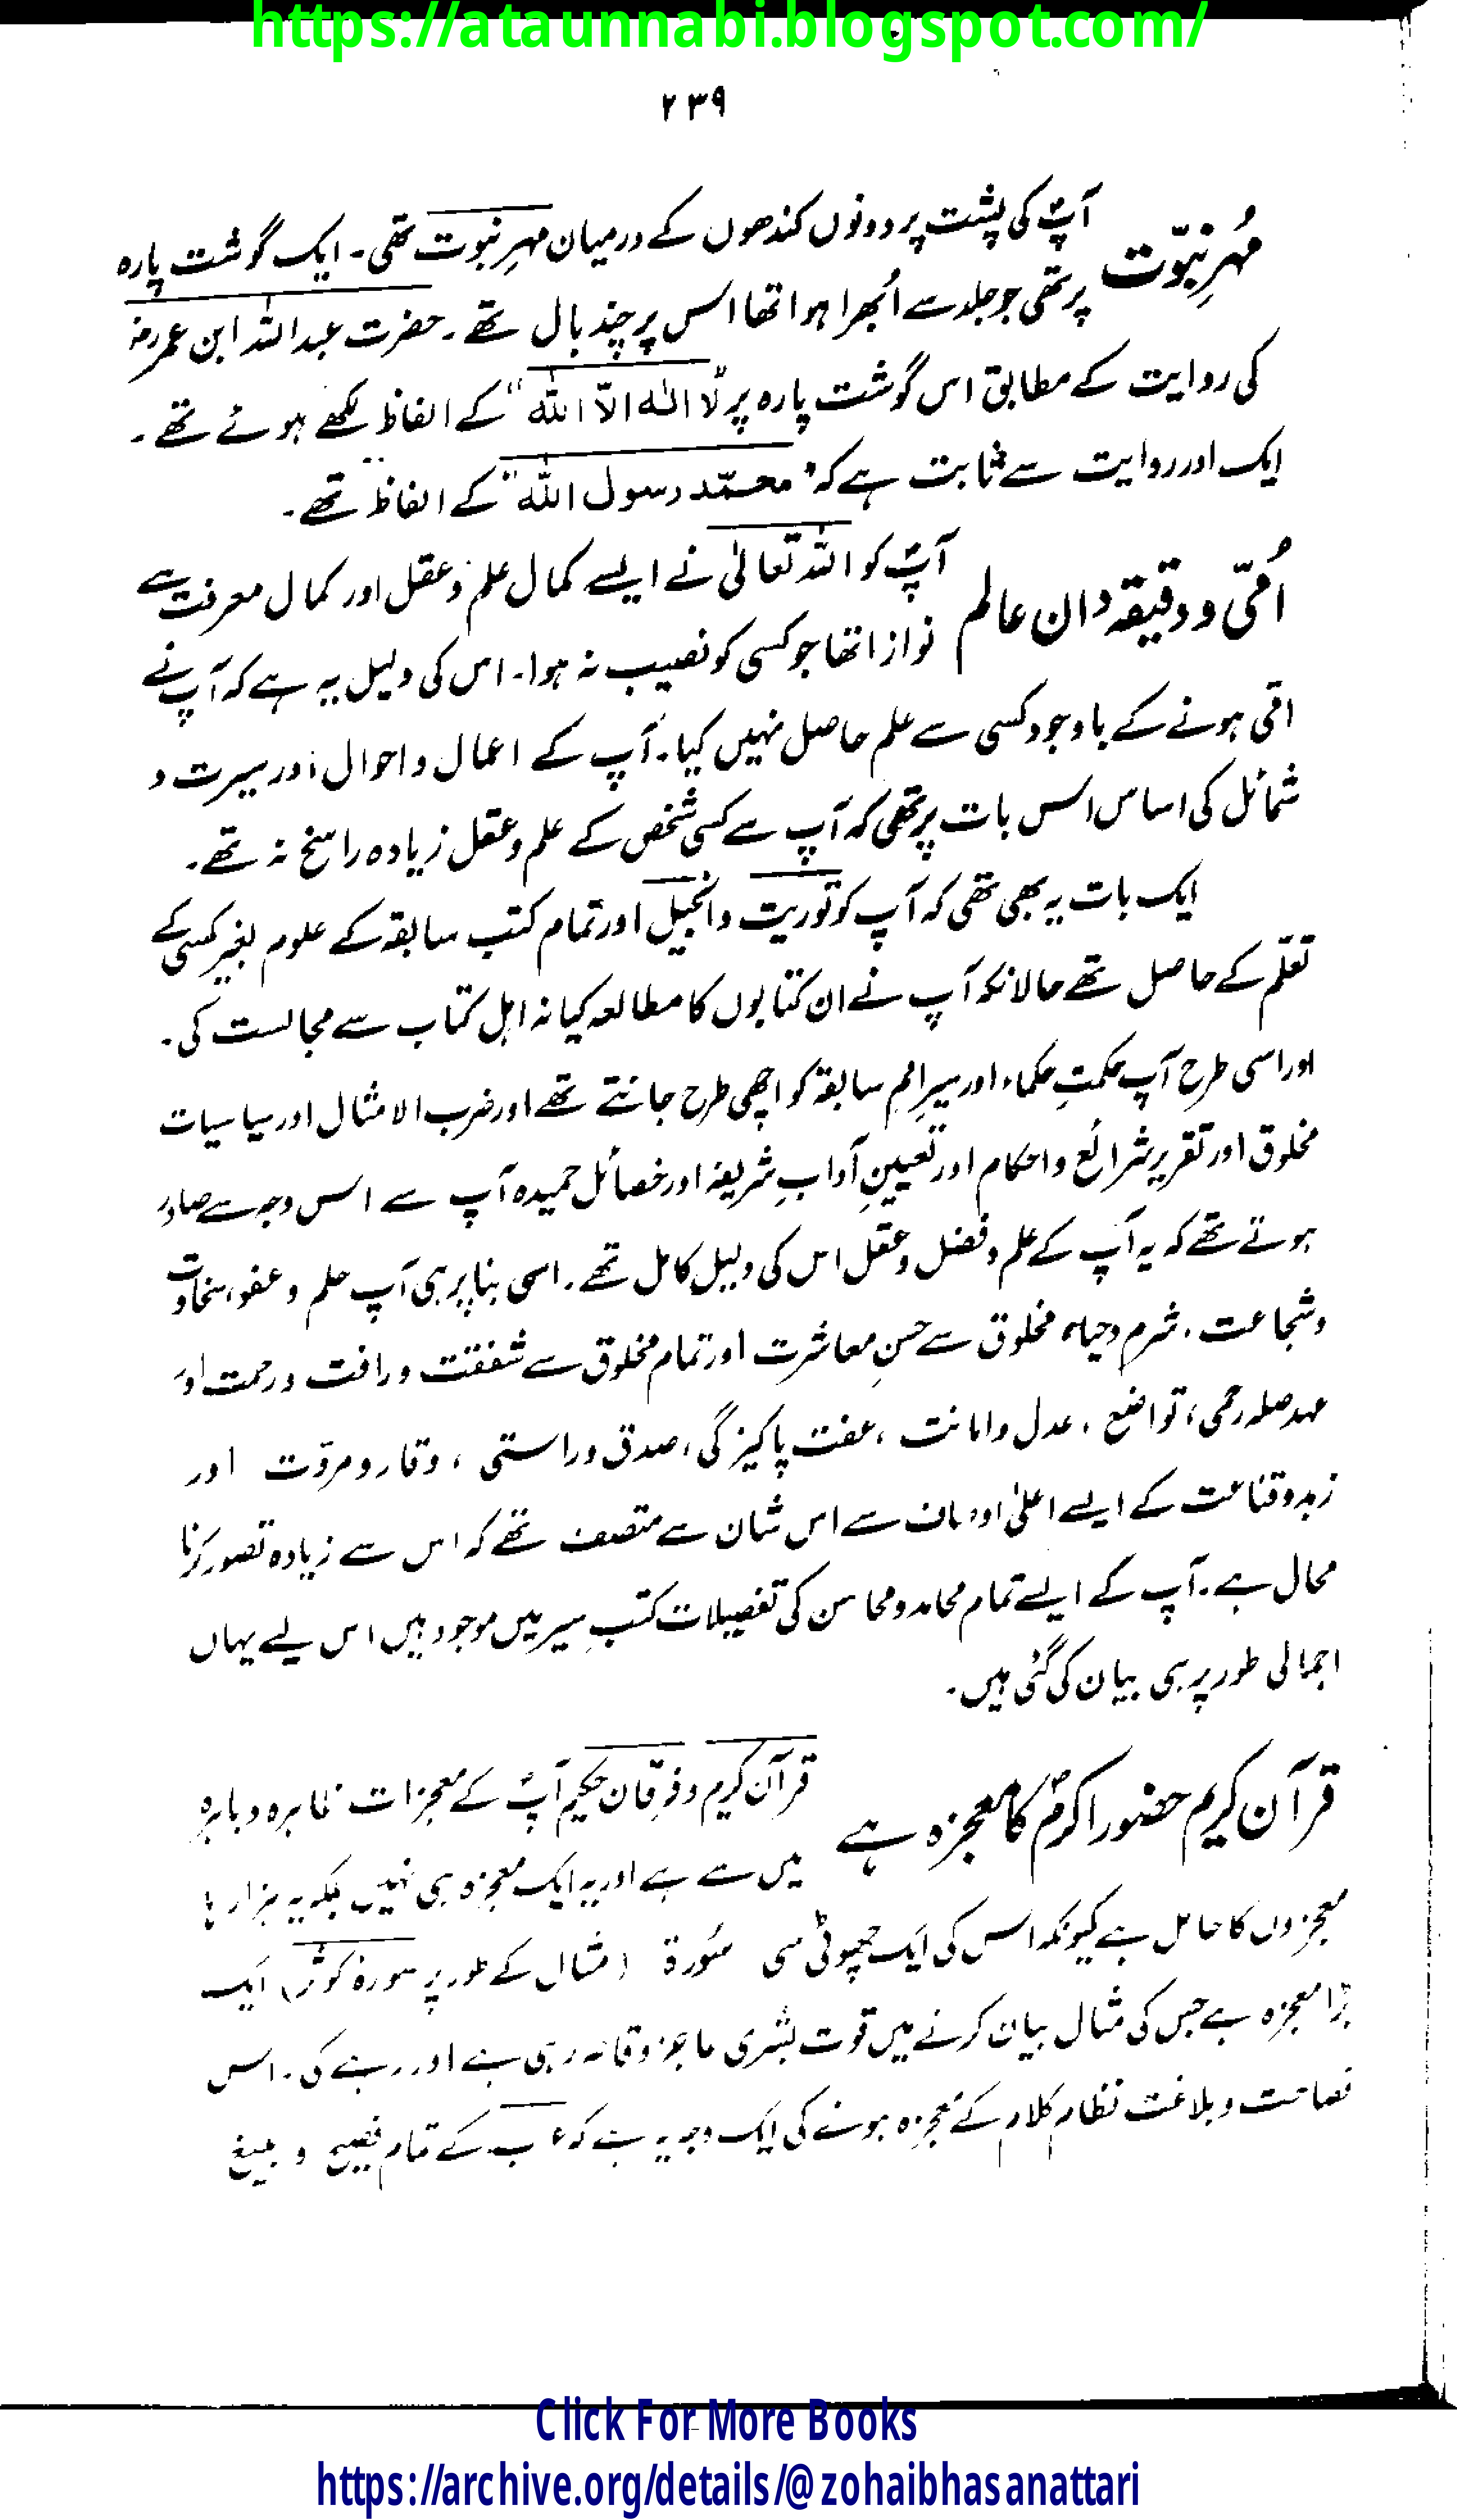 https://ataunnabi.blogspot.com/
۲۳۹
مُہرِ نبوّت
آپؐ کی پشت پر دونوں کندھوں کے درمیان مہرِ نبوت تھی۔ ایک گوشت پارہ
پر تھی جو جلد سے اُبھرا ہوا تھا اس پر چند بال تھے۔ حضرت عبداللہ ابن عمر رضہ
کی روایت کے مطابق اس گوشت پارہ پر "لا الٰہ الّا اللہ" کے الفاظ لکھے ہوئے تھے۔
ایک اور روایت سے ثابت ہے کہ "محمّد رسول اللہ" کے الفاظ تھے۔
اُمّی و دقیقہ دان عالم
آپؐ کو اللہ تعالیٰ نے ایسے کمال علم و عقل اور کمال معرفت سے
نوازا تھا جو کسی کو نصیب نہ ہوا۔ اس کی دلیل یہ ہے کہ آپ نے
امّی ہونے کے باوجود کسی سے علم حاصل نہیں کیا۔ آپ کے اعمال و احوال اور سیرت و
شمائل کی اساس اس بات پر تھی کہ آپ سے کسی شخص کے علم و عقل زیادہ راسخ نہ تھے۔
ایک بات یہ بھی تھی کہ آپ کو توریت و انجیل اور تمام کتب سابقہ کے علوم بغیر کسی کے
تعلّم کے حاصل تھے حالانکہ آپ نے ان کتابوں کا مطالعہ کیا نہ اہل کتاب سے مجالست کی۔
اور اسی طرح آپ حکمتِ حکماء اور سیرِ امم سابقہ کو اچھی طرح جانتے تھے اور ضرب الامثال اور سیاسیات
مخلوق اور تقریرِ شرائع و احکام اور تعیینِ آدابِ شریفہ اور خصائل حمیدہ آپ سے اس وجہ سے صادر
ہوتے تھے کہ یہ آپ کے علم و فضل و عقل اس کی دلیل کامل تھے۔ اسی بنا پر ہی آپ حلم و عفو، سخاوت
و شجاعت، شرم و حیاء، مخلوق سے حسنِ معاشرت اور تمام مخلوق سے شفقت و رافت و رحمت اور
عہد صلہ رحمی، تواضع، عدل و امانت، عفت پاکیزگی، صدق و راستی، وقار و مروّت اور
زہد و قناعت کے ایسے اعلیٰ اوصاف سے اس شان سے متصف تھے کہ اس سے زیادہ تصور کرنا
محال ہے۔ آپ کے ایسے تمام محامد و محاسن کی تفصیلات کتبِ سیر میں موجود ہیں اس لیے یہاں
اجمالی طور پر ہی بیان کی گئی ہیں۔
قرآن کریم حضور اکرمؐ کا معجزہ ہے
قرآن کریم و فرقان حکیم آپؐ کے معجزات ظاہرہ و باہرہ
میں سے ہے اور یہ ایک معجزہ ہی نہیں بلکہ یہ ہزار ہا
معجزوں کا حامل ہے کیونکہ اس کی ایک چھوٹی سی سُورۃ (مثال کے طور پر سورۃ کوثر) ایک
بڑا معجزہ ہے جس کی مثال بیان کرنے میں قوت بشری عاجز و قاصر رہی ہے اور رہے گی۔ اس
فصاحت و بلاغت نظام کلام کے معجزہ ہونے کی ایک وجہ یہ ہے کہ عرب کے تمام فصیح و بلیغ
Click For More Books
https://archive.org/details/@zohaibhasanattari